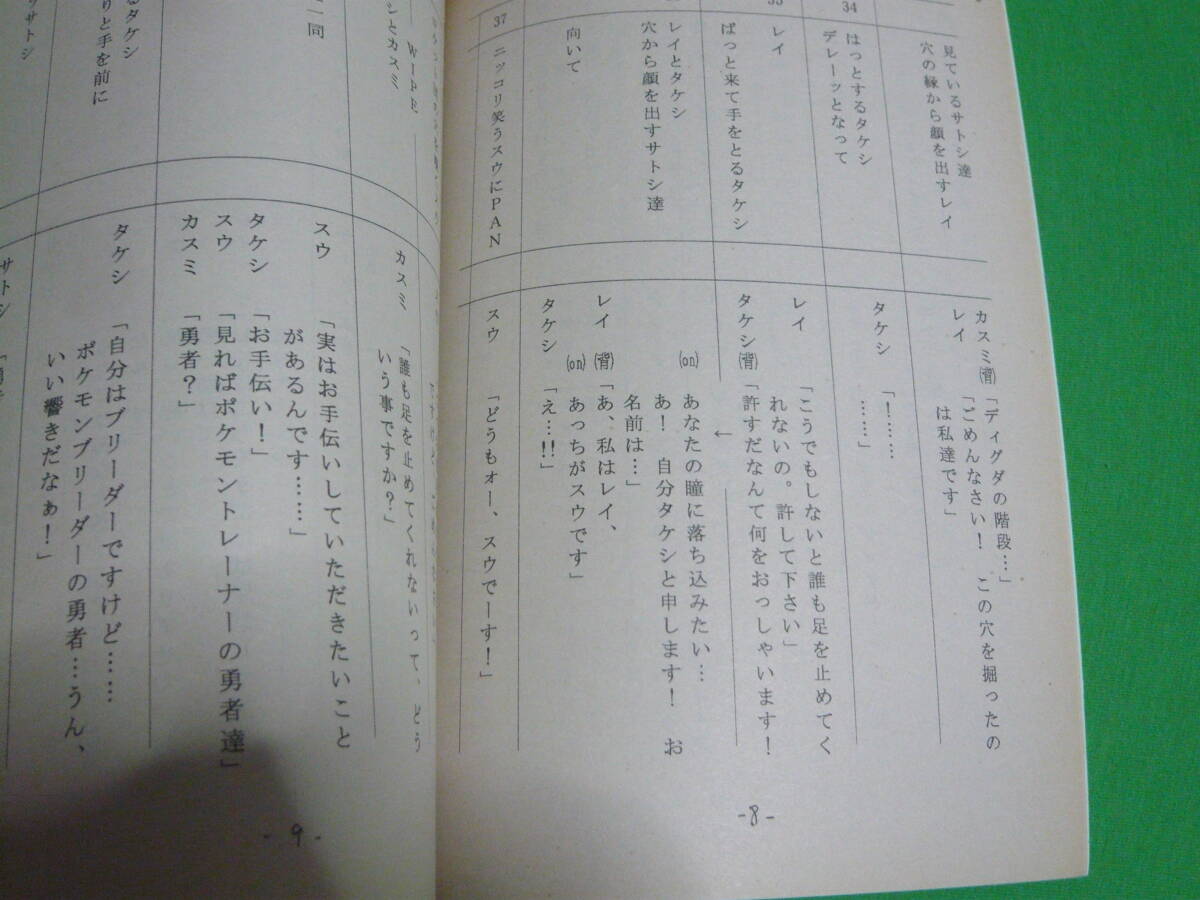 見ているサトシ達
穴の縁から顔を出すレイ
カスミ㈼「ディグダの階段…」
レイ 「ごめんなさい！ この穴を掘ったの
は私達です」
34
はっとするタケシ
デレーッとなって
タケシ 「！……
……」
レイ
ぱっと来て手をとるタケシ
レイ 「こうでもしないと誰も足を止めてく
れないの。許して下さい」
タケシ(背)「許すだなんて何をおっしゃいます！
←
レイとタケシ
穴から顔を出すサトシ達
(on) あなたの瞳に落ち込みたい…
あ！ 自分タケシと申します！ お
名前は…」
向いて
レイ(背)「あ、私はレイ、
(on) あっちがスウです」
タケシ 「え…!!」
37
ニッコリ笑うスウにPAN
スウ 「どうもォー、スウでーす！」
- 8 -
WIPE
シとカスミ
カスミ 「誰も足を止めてくれないって、どう
いう事ですか？」
一同
スウ 「実はお手伝いしていただきたいこと
があるんです……」
タケシ 「お手伝い！」
スウ 「見ればポケモントレーナーの勇者達」
カスミ 「勇者？」
るタケシ
りと手を前に
タケシ 「自分はブリーダーですけど……
ポケモンブリーダーの勇者…うん、
いい響きだなぁ！」
サトシ
サトシ
- 9 -